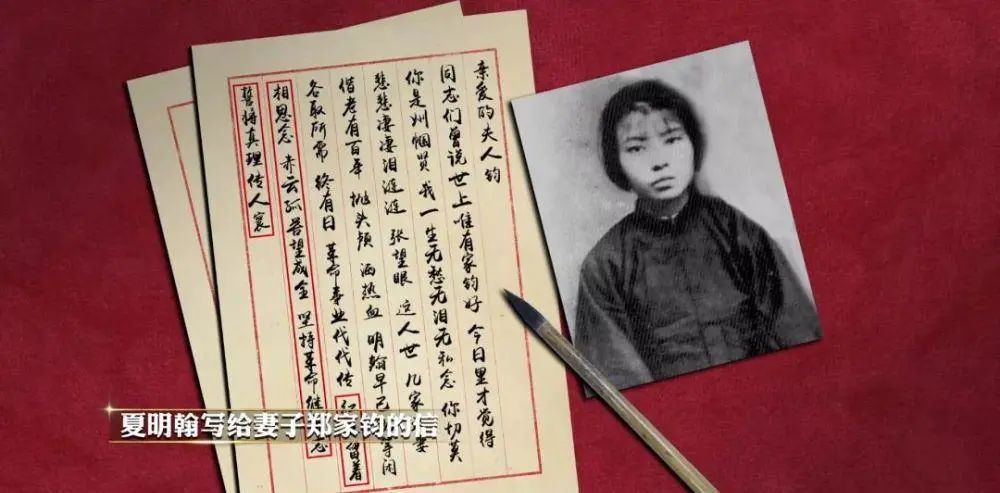 亲爱的夫人钧
同志们曾说世上唯有家钧好 今日里才觉得
你是帼贤 我一生无愁无泪无私念 你切莫
悲悲凄凄泪涟涟 张望眼 这人世 几家妻
偕老有百年 抛头颅 洒热血 明翰早已等闲
各取所需 终有日 革命事业代代传 留着
相思念 赤云孤苦望成全 坚持革命继志
誓将真理传人寰
夏明翰写给妻子郑家钧的信